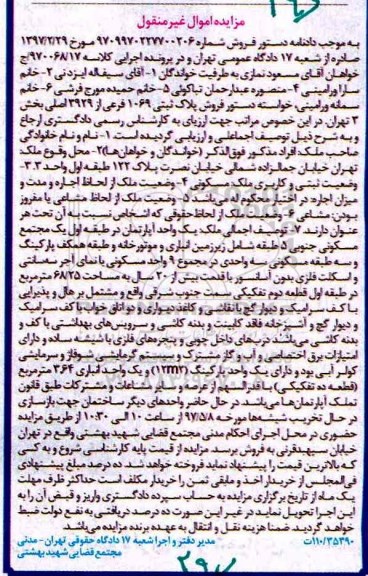 مزایده اموال غیر منقول
به موجب دادنامه دستور فروش شماره ۹۷۰۹۹۷۰۲۲۷۷۰۰۲۰۶ مورخ ۱۳۹۷/۲/۲۹
صادره از شعبه ۱۷ دادگاه عمومی تهران و در پرونده اجرایی کلاسه ۹۷۰۰۶۸/۱۷/ج
خواهان آقای مسعود نمازی به طرفیت خواندگان ۱- آقای سیف‌اله ایزدنی ۲- خانم
سارا ورامینی ۳- منصوره عبدارحمان تباکوئی ۵- خانم حمیده مورج فرشی ۶- خانم
سمانه ورامینی، خواسته دستور فروش پلاک ثبتی ۱۰۶۹ فرعی از ۳۹۲۹ اصلی بخش
۳ تهران، در این خصوص مراتب جهت ارزیابی به کارشناس رسمی دادگستری ارجاع
و به شرح ذیل توصیف اجماعلی و ارزیابی گردیده است. ۱- نام و نام خانوادگی
صاحب ملک: افراد مذکور فوق‌الذکر (خواندگان و خواهان‌ها) ۲- محل وقوع ملک:
تهران خیابان جمالزاده شمالی خیابان نصرت پلاک ۱۲۲ طبقه اول واحد ۳. ۳-
وضعیت ثبتی و کاربری ملک: مسکونی ۴- وضعیت ملک از لحاظ اجاره و مدت و
میزان اجاره: در اختیار محکوم له می‌باشد. ۵- وضعیت ملک از لحاظ مشاعی یا مفروز
بودن: مشاعی ۶- وضعیت ملک از لحاظ حقوقی که اشخاص نسبت به آن تحت هر
عنوان دارند. ۷- توصیف اجمالی ملک: یک واحد آپارتمان در طبقه اول یک مجتمع
مسکونی جنوبی ۵ طبقه شامل زیرزمین انباری و موتورخانه و طبقه همکف پارکینگ
و سه طبقه مسکونی سه واحدی در مجموع ۹ واحد مسکونی با نمای آجر سه‌سانتی
و اسکلت فلزی بدون آسانسور با قدمت بیش از ۲۰ سال به مساحت ۶۸/۲۵ مترمربع
در طبقه اول قطعه دوم تفکیکی سمت جنوب شرقی واقع و مشتمل بر هال و پذیرایی
با کف سرامیک و دیوار گچ با نقاشی و کاغذ دیواری و دو اتاق خواب با کف سرامیک
و دیوار گچ و آشپزخانه فاقد کابینت و بدنه کاشی و سرویس‌های بهداشتی با کف و
بدنه کاشی می‌باشد درب‌های داخل چوبی و پنجره‌های فلزی با شیشه ساده و دارای
امتیازات برق اختصاصی و آب و گاز مشترک و سیستم گرمایشی شوفاژ و سرمایشی
کولر آبی بود و دارای یک واحد پارکینگ (۱۲m۲) و یک واحد انباری ۳۶۴ مترمربع
(قطعه ده تفکیکی) با قدر السهم از عرصه و سایر مشاعات و مشترکات طبق قانون
تملک آپارتمان‌ها می‌باشد در حال حاضر واحدهای دیگر ساختمان جهت بازسازی
در حال تخریب شیشه‌ها مورخه ۹۷/۵/۸ از ساعت ۱۰ الی ۱۰:۳۰ از طریق مزایده
حضوری در محل اجرای احکام مدنی مجتمع قضایی شهید بهشتی واقع در تهران
خیابان سپهبدقرنی به فروش برسد. مزایده از قیمت پایه کارشناسی شروع و به کسی
که بالاترین قیمت را پیشنهاد نماید فروخته خواهد شد. ده درصد مبلغ پیشنهادی
فی‌المجلس از خریدار اخذ و مابقی ثمن را خریدار مکلف است حداکثر ظرف مهلت
یک ماه از تاریخ برگزاری مزایده به حساب سپرده دادگستری واریز و قبض آن را به
این اجرا تحویل نماید در غیر این صورت ده درصد دریافتی به نفع دولت ضبط
خواهد گردید. ضمنا هزینه نقل و انتقال به عهده برنده مزایده می‌باشد.
۱۱۰/۳۵۳۹۰ت
مدیر دفتر و اجرا شعبه ۱۷ دادگاه حقوقی تهران - مدنی
مجتمع قضایی شهید بهشتی